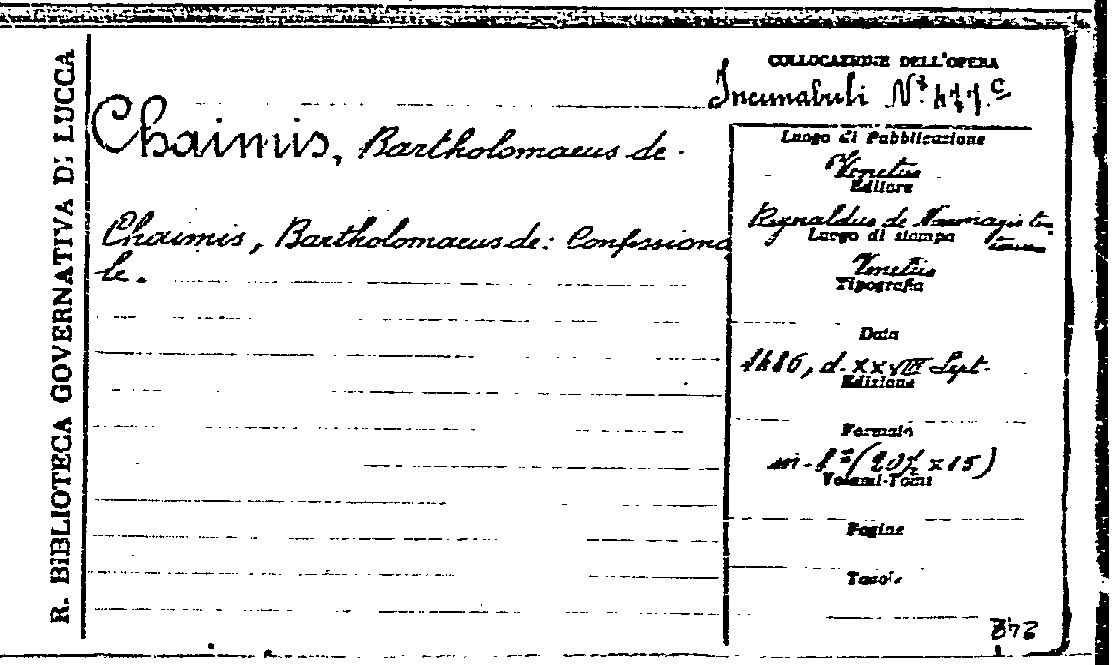 R. BIBLIOTECA GOVERNATIVA DI LUCCA
Chaimis, Bartholomaeus de.
Chaimis, Bartholomaeus de: Confessiona
le.
COLLOCAZIONE DELL'OPERA
Incunabuli N.° 477.c
Luogo di Pubblicazione
Venetiis
Editore
Rynaldus de
Luogo di stampa
Venetiis
Tipografia
Data
1486, d. XXVIII Sept.
Edizione
Formato
in-8° (20½ x 15)
Volumi-Tomi
Pagine
Tavole